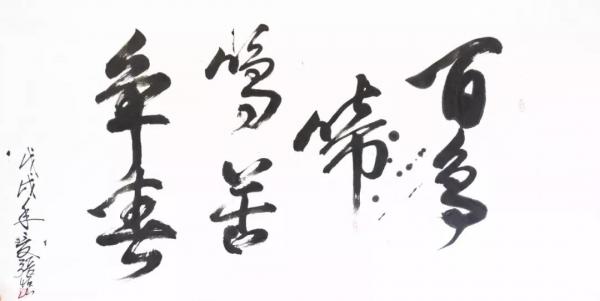 百鸟
啼
鸣苦
争春
戊戌年夏